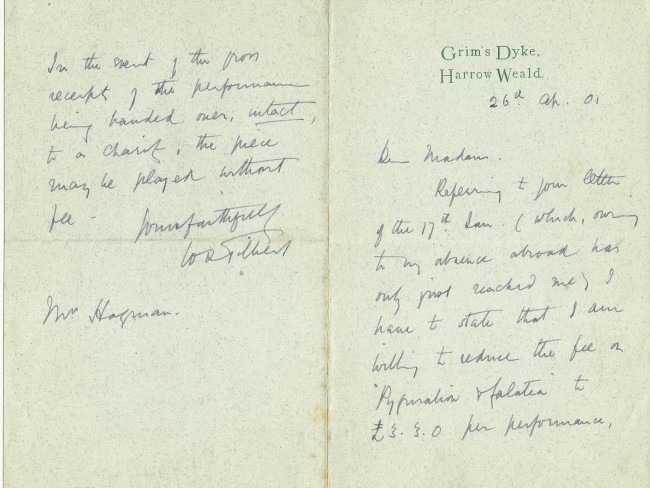 Grim's Dyke,
Harrow Weald.
26th Ap. 01
Dear Madam.
Referring to your letter
of the 17th Jan. (which, owing
to my absence abroad has
only just reached me) I
have to state that I am
willing to reduce the fee on
"Pygmalion & Galatea" to
£3.3.0 per performance.
In the event of the gross
receipts of the performance
being handed over, intact,
to a charity, the piece
may be played without
fee -
Yours faithfully
WS Gilbert
Mrs Hagman.